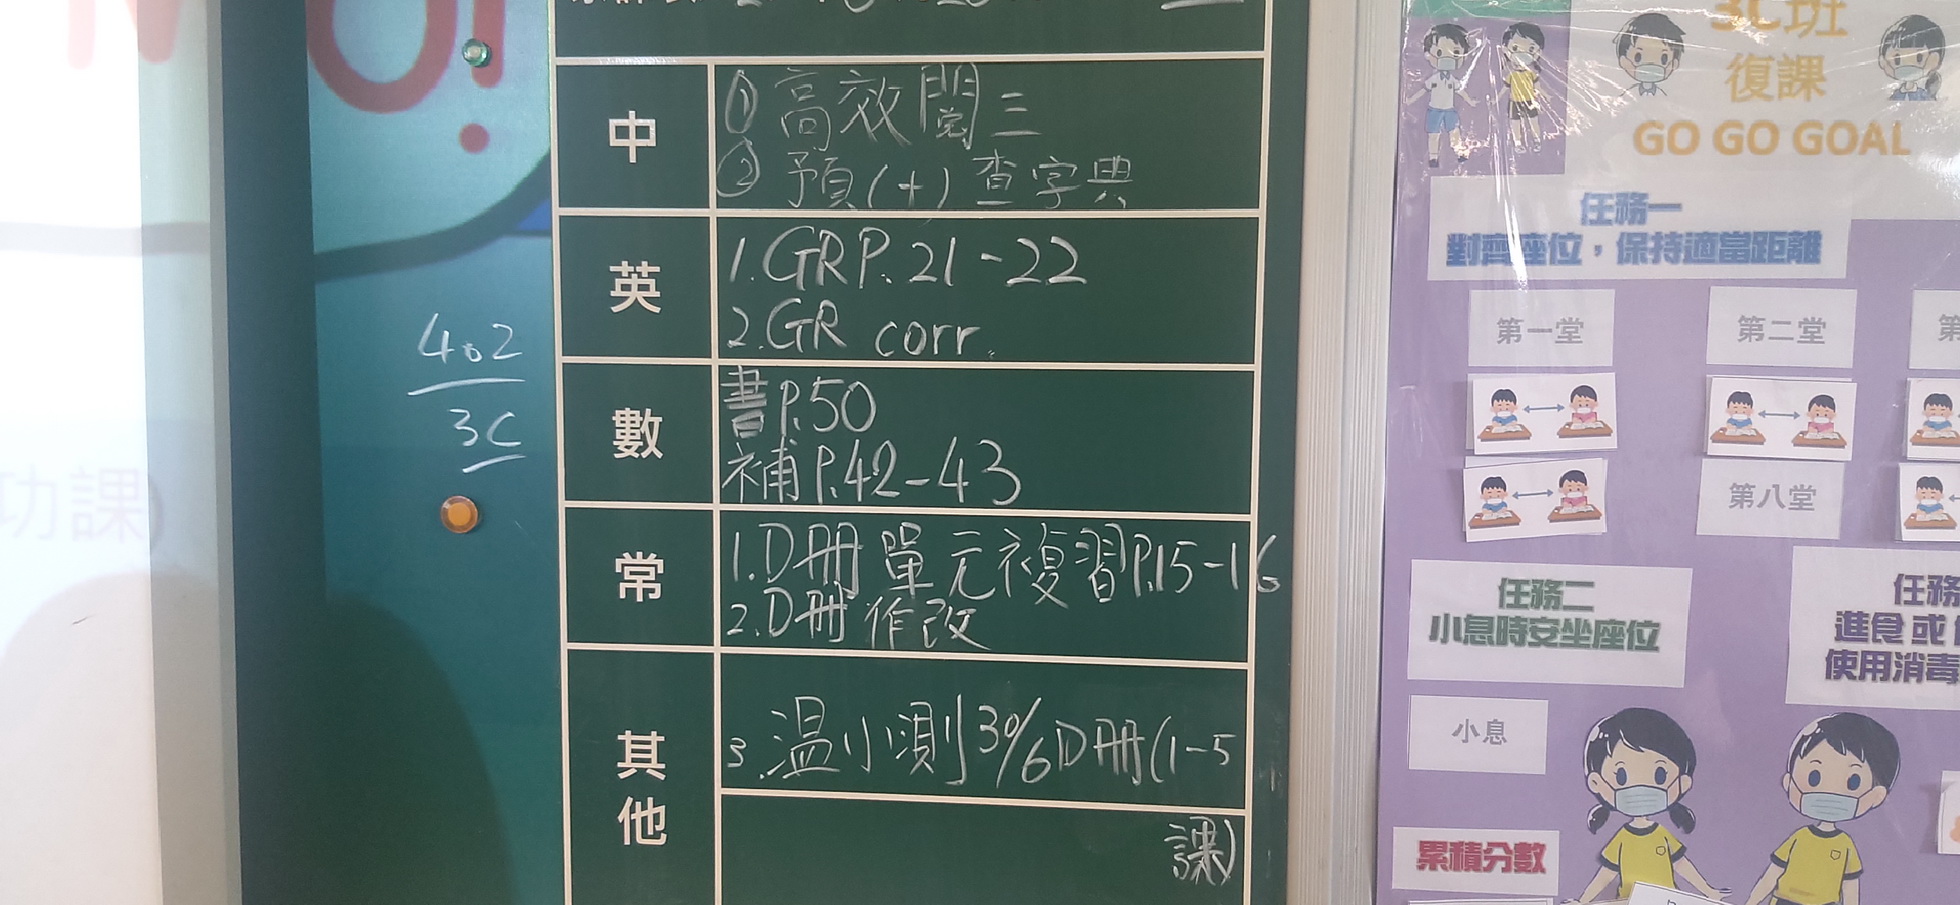 中
① 高效閱三
② 預(十)查字典
英
1.GR P.21-22
2.GR corr.
數
書P.50
補P.42-43
常
1.D冊單元複習P.15-16
2.D冊作改
其他
3.溫小測30/6D冊(1-5
課)
402
3C
功課)
3C班
復課
GO GO GOAL
任務一
對齊座位,保持適當距離
第一堂
第二堂
第
第八堂
任務二
小息時安坐座位
任務
進食或
使用消毒
小息
累積分數